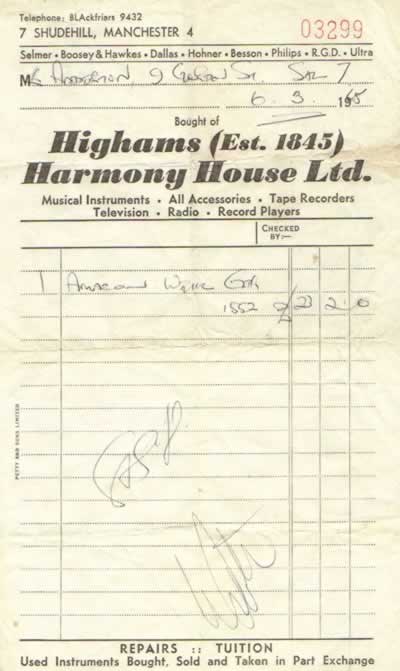 Telephone: BLAckfriars 9432
7 SHUDEHILL, MANCHESTER 4
03299
Selmer • Boosey & Hawkes • Dallas • Hohner • Besson • Philips • R.G.D. • Ultra
M
St. Sal 7
6. 3. 1965
Bought of
Highams (Est. 1845)
Harmony House Ltd.
Musical Instruments • All Accessories • Tape Recorders
Television • Radio • Record Players
CHECKED
BY:—
1
1552 23 2 0
PETTY AND SONS LIMITED
REPAIRS :: TUITION
Used Instruments Bought, Sold and Taken in Part Exchange